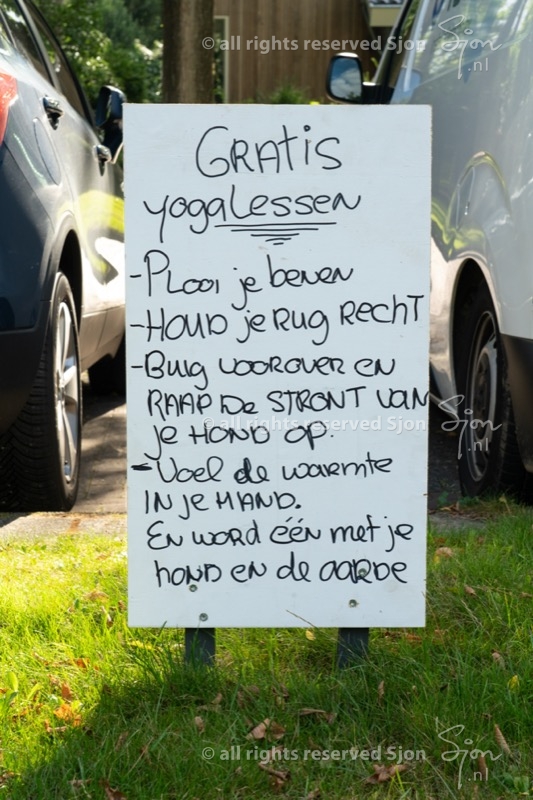 ©all rights reserved Sjon
Sjon
.nl
GRATIS
yogaLessen
- PLooi je benen
- HOUD je RUG RECHT
- BUig VOOROVER en
RAAP DE STRONT VAN
©all rights reserved Sjon
Sjon
.nl
je HOND OP.
- Voel de warmte
IN je HAND.
En WORD één met je
HOND en de aarde
©all rights reserved Sjon
Sjon
.nl